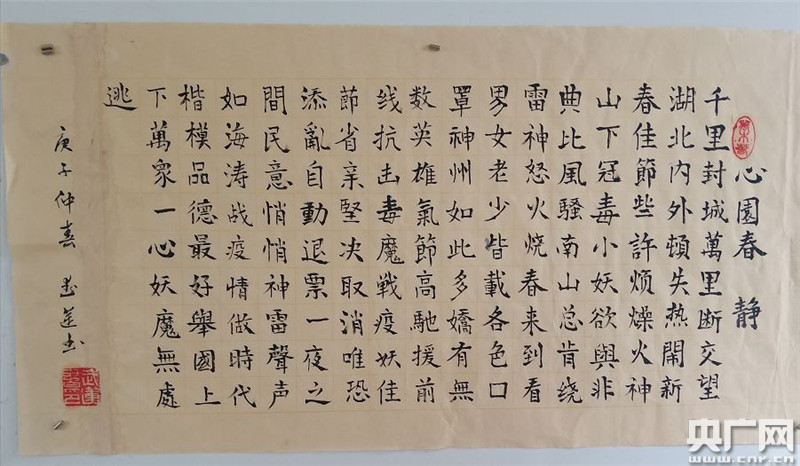 心園春 静
千里封城萬里断交望
湖北内外頓失热鬧新
春佳節些許烦燥火神
山下冠毒小妖欲與非
典比風騷南山总肯绕
雷神怒火烧春来到看
男女老少皆載各色口
罩神州如此多嬌有無
数英雄氣節高馳援前
线抗击毒魔戦疫妖佳
節省亲堅决取消唯恐
添亂自動退票一夜之
間民意悄悄神雷聲声
如海涛战疫情做時代
楷模品德最好舉國上
下萬衆一心妖魔無處
逃
庚子仲春
央广网
www.cnr.cn